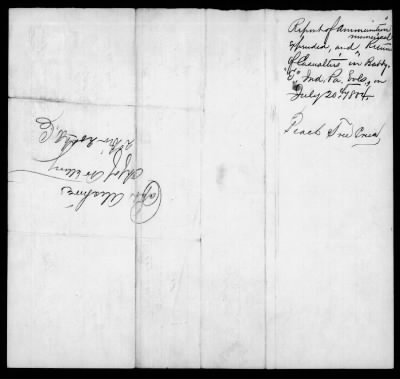 "Report of ammunition
expended, and Return
of Casualties" in Batty.
"E", Ind. Pa. Vols, on
July 20th 1864
Peach Tree Creek
Capt. 
Chf of Artillery
2 Div 20th A.C.